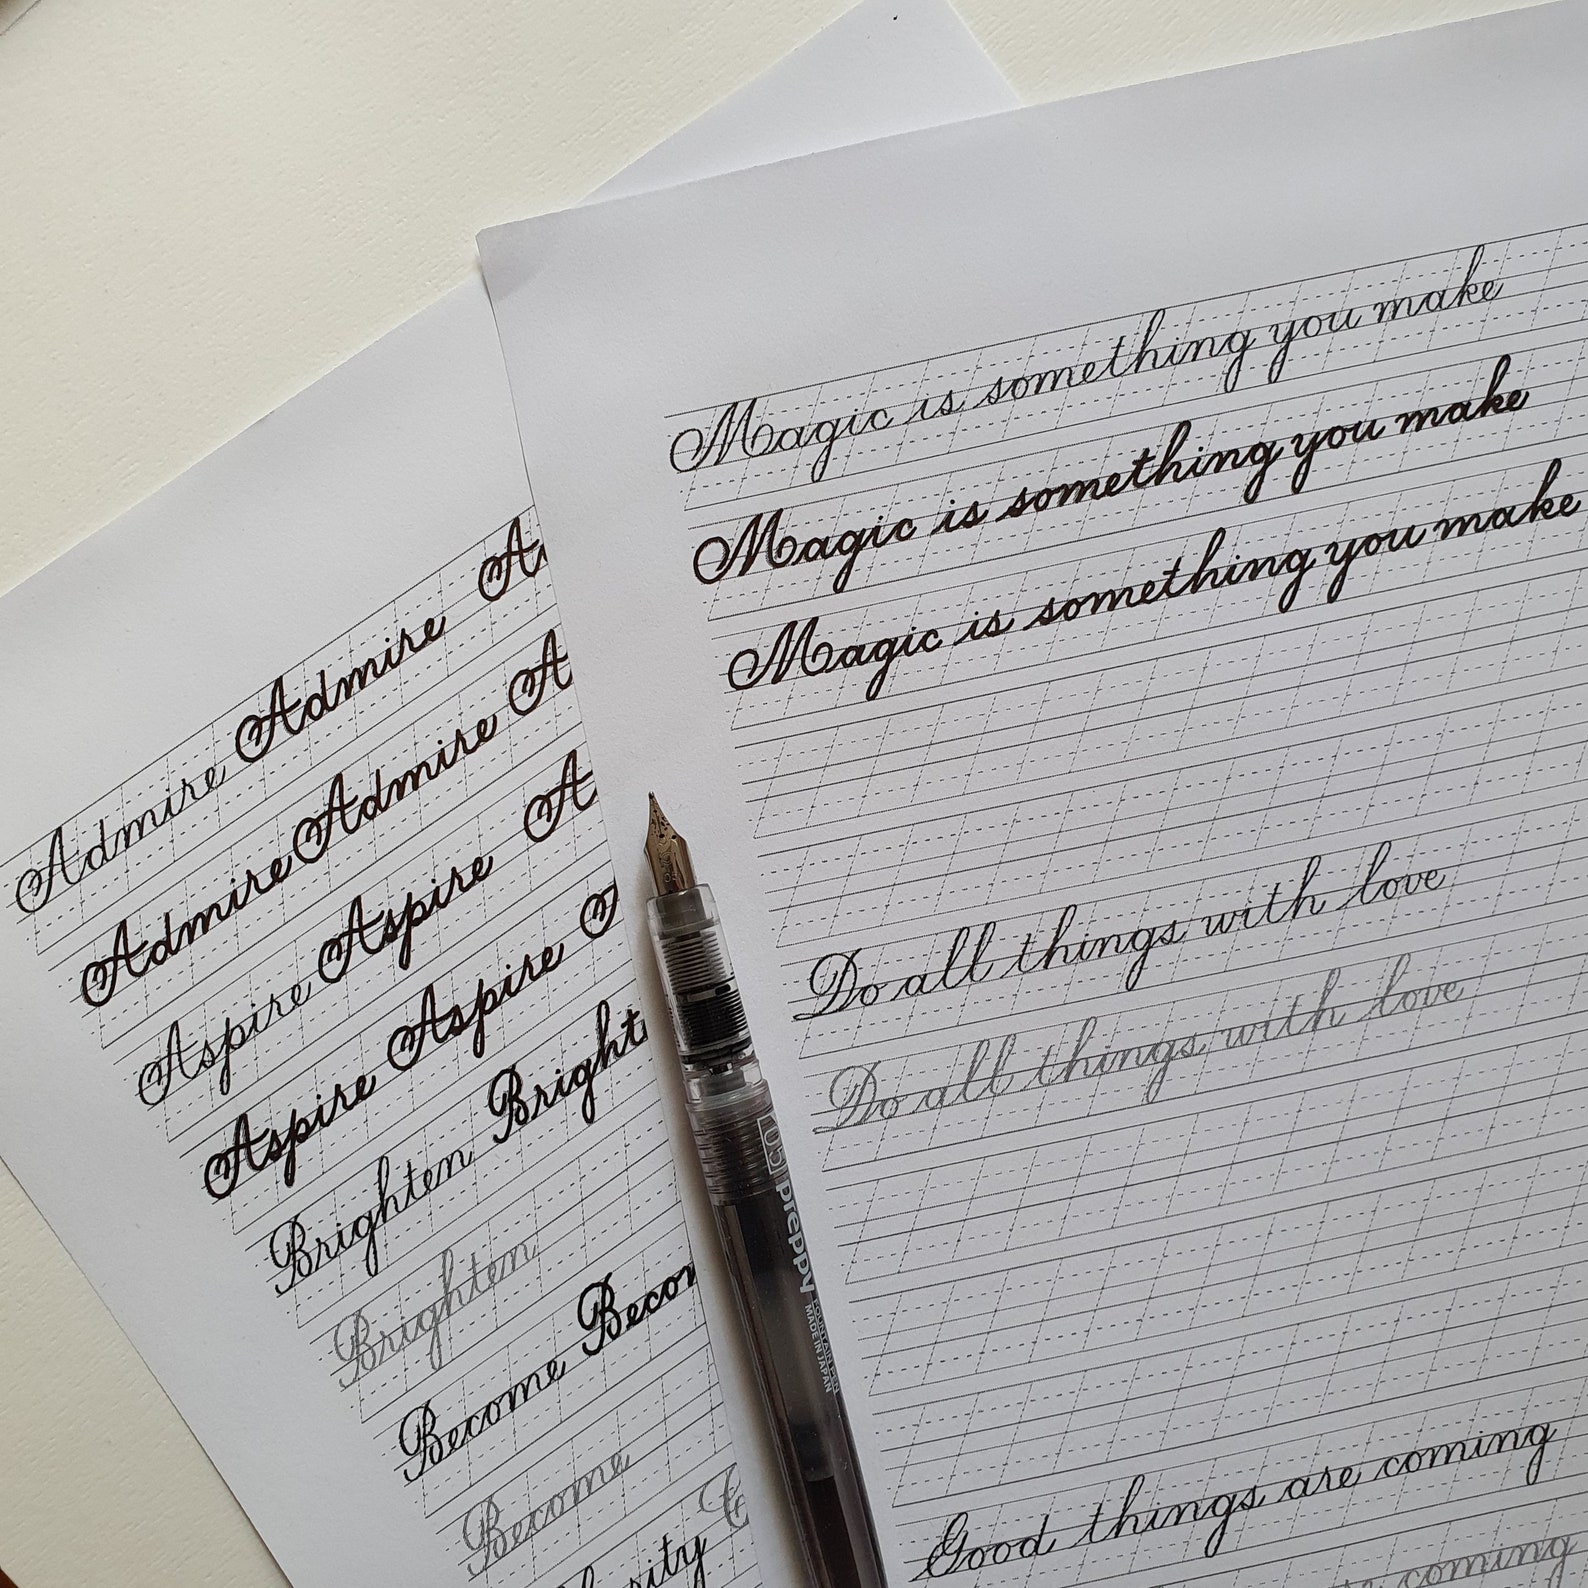 Magic is something you make
Magic is something you make
Magic is something you make
Do all things with love
Do all things with love
Good things are coming
coming
Admire Admire
Admire Admire
Aspire Aspire
Aspire Aspire
Brighten
Brighten
Become
Become
preppy
FOUNTAIN PEN
MADE IN JAPAN